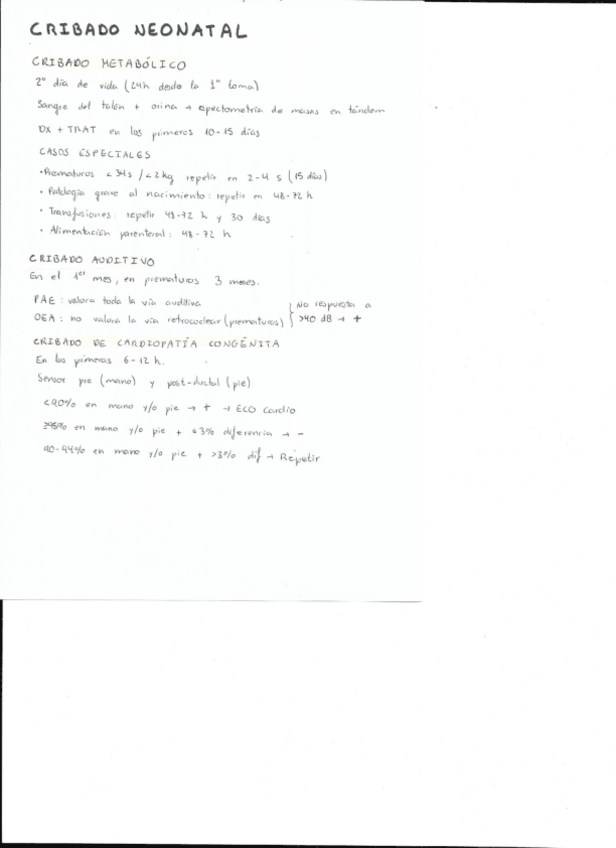 CRIBADO NEONATAL
CRIBADO METABÓLICO
2º día de vida (24h desde la 1ª toma)
Sangre del talón + orina → epectometría de masas en tándem
DX + TRAT en los primeros 10-15 días
CASOS ESPECIALES
• Prematuros <34s / <2kg repetir en 2-4 s (15 días)
• Patología grave al nacimiento: repetir en 48-72 h
• Transfusiones: repetir 48-72 h y 30 días
• Alimentación parenteral: 48-72 h
CRIBADO AUDITIVO
En el 1er mes, en prematuros 3 meses.
PAE: valora toda la vía auditiva
OEA: no valora la vía retrococlear (prematuros)
No respuesta a
>40 dB → +
CRIBADO DE CARDIOPATÍA CONGÉNITA
En las primeras 6-12 h.
Sensor pre (mano) y post-ductal (pie)
<90% en mano y/o pie → + → ECO cardio
≥95% en mano y/o pie + <3% diferencia → -
90-94% en mano y/o pie + >3% dif → Repetir